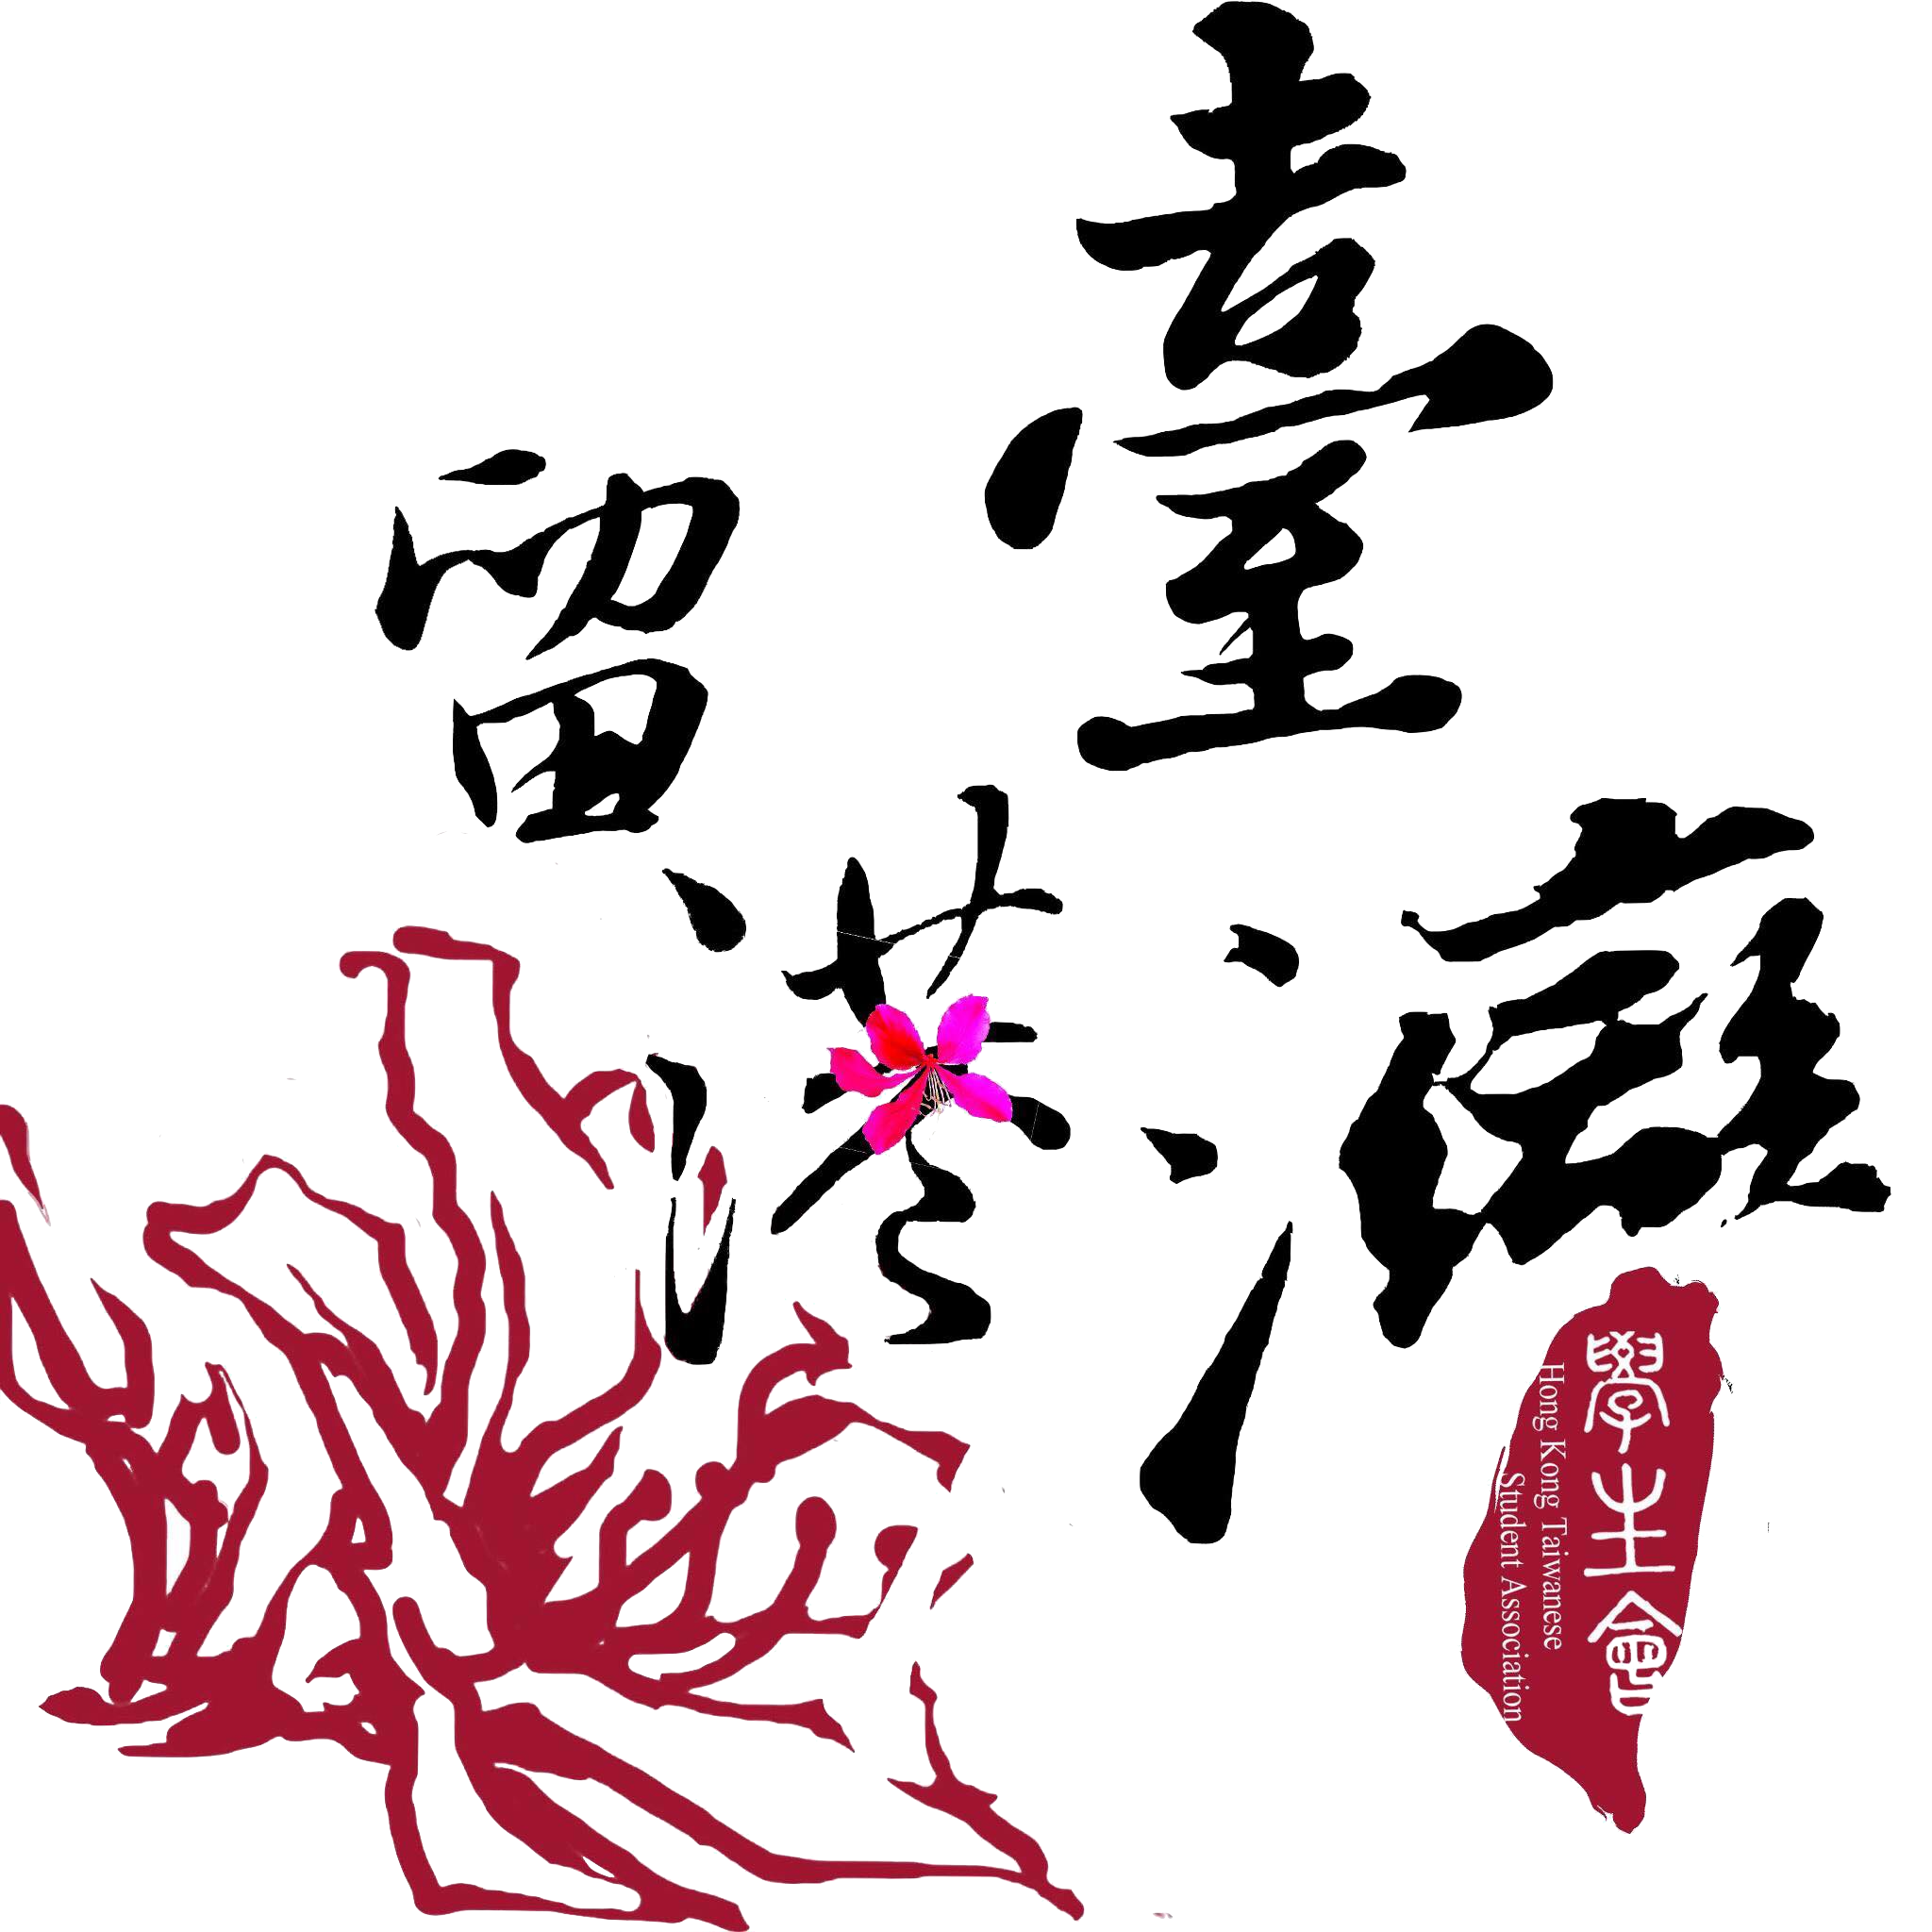 臺灣
留港
學生會
Hong Kong Taiwanese
Student Association